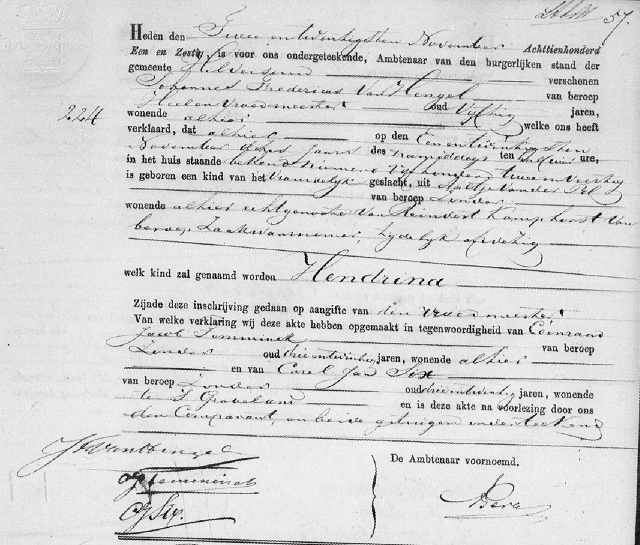 57.
Heden den Twee en twintigsten November Achttienhonderd
Een en Zestig, is voor ons ondergeteekende, Ambtenaar van den burgerlijken stand der
gemeente Hilversum verschenen
Johannes Fredericus Van Hengel van beroep
Heel en Vroedmeester oud Vijftig jaren,
224
wonende alhier welke ons heeft
verklaard, dat alhier op den Eenentwintigsten
November dezes jaars des namiddags ten ure,
in het huis staande bekend nummer Vijfhonderd twee en veertig
is geboren een kind van het Vrouwelijk geslacht, uit Aaltje van der Pol
van beroep Zonder
wonende alhier echtgenoote van Reindert Kamphorst van
beroep Zaakwaarnemer, tydelyk afwezig
welk kind zal genaamd worden Hendrina
Zijnde deze inschrijving gedaan op aangifte van den vroedmeester
Van welke verklaring wij deze akte hebben opgemaakt in tegenwoordigheid van
Jacob Temminck van beroep
Zonder oud drieentwintig jaren, wonende alhier
en van Carel Jan Six
van beroep Zonder oud drieentwintig jaren, wonende
te 's Graveland en is deze akte na voorlezing door ons
den Comparant, en beide getuigen onderteekend
JF van Hengel
De Ambtenaar voornoemd.
Temminck
CJ Six.